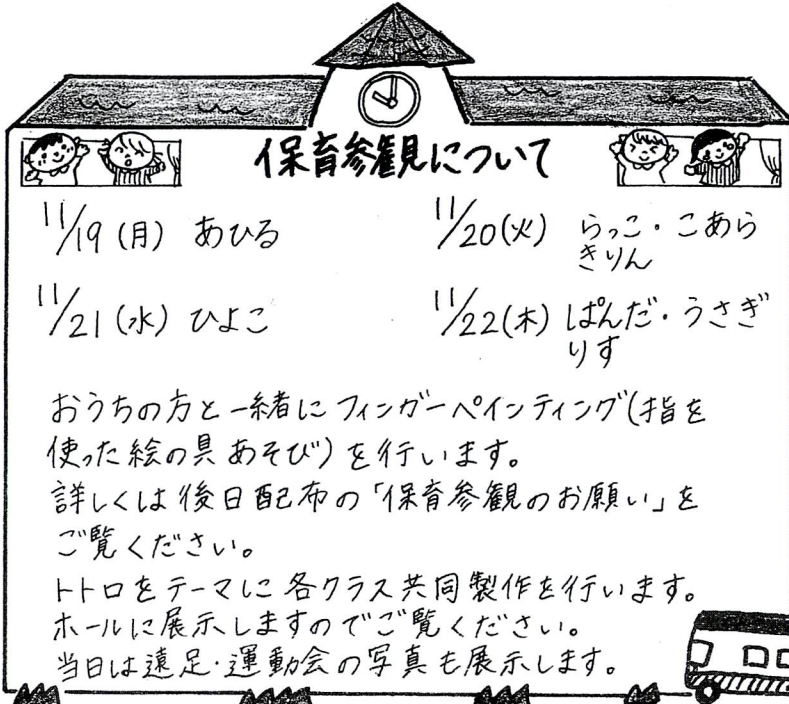 保育参観について
11/19(月) あひる
11/20(火) らっこ・こあら
きりん
11/21(水) ひよこ
11/22(木) ぱんだ・うさぎ
りす
おうちの方と一緒にフィンガーペインティング(指を
使った絵の具あそび)を行います。
詳しくは後日配布の「保育参観のお願い」を
ご覧ください。
トトロをテーマに各クラス共同製作を行います。
ホールに展示しますのでご覧ください。
当日は遠足・運動会の写真も展示します。